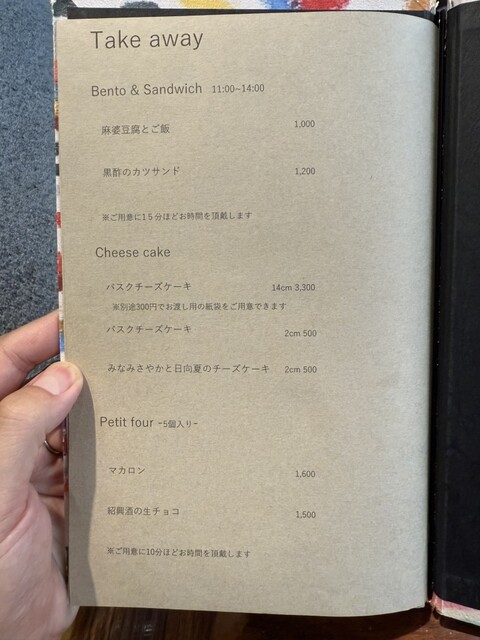 Take away
Bento & Sandwich 11:00~14:00
麻婆豆腐とご飯 1,000
黒酢のカツサンド 1,200
※ご用意に15分ほどお時間を頂戴します
Cheese cake
バスクチーズケーキ 14cm 3,300
※別途300円でお渡し用の紙袋をご用意できます
バスクチーズケーキ 2cm 500
みなみさやかと日向夏のチーズケーキ 2cm 500
Petit four -5個入り-
マカロン 1,600
紹興酒の生チョコ 1,500
※ご用意に10分ほどお時間を頂戴します